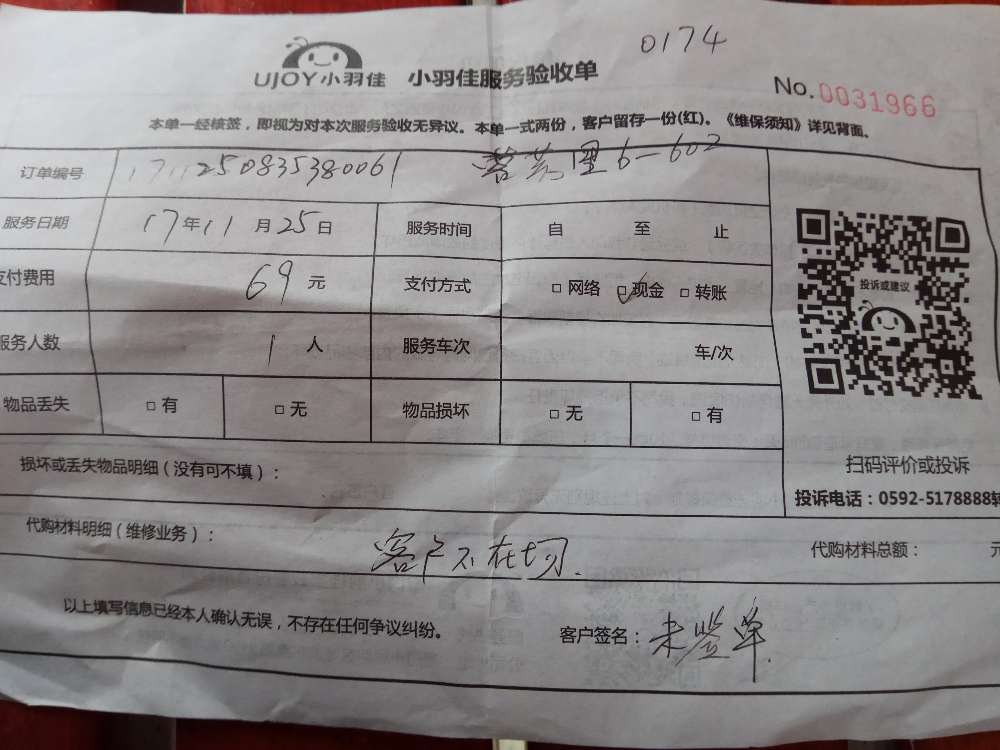 0174
UJOY小羽佳 小羽佳服务验收单
No.0031966
本单一经核签，即视为对本次服务验收无异议。本单一式两份，客户留存一份(红)。《维保须知》详见背面。
订单编号 1711250835380061 6-602
服务日期 17年11月25日 服务时间 自 至 止
支付费用 69元 支付方式 □网络 □现金 □转账
服务人数 1人 服务车次 车/次
物品丢失 □有 □无 物品损坏 □无 □有
投诉或建议
扫码评价或投诉
投诉电话：0592-5178888转
损坏或丢失物品明细（没有可不填）：
代购材料明细（维修业务）： 代购材料总额： 元
客户不在场.
以上填写信息已经本人确认无误，不存在任何争议纠纷。 客户签名：未签单.